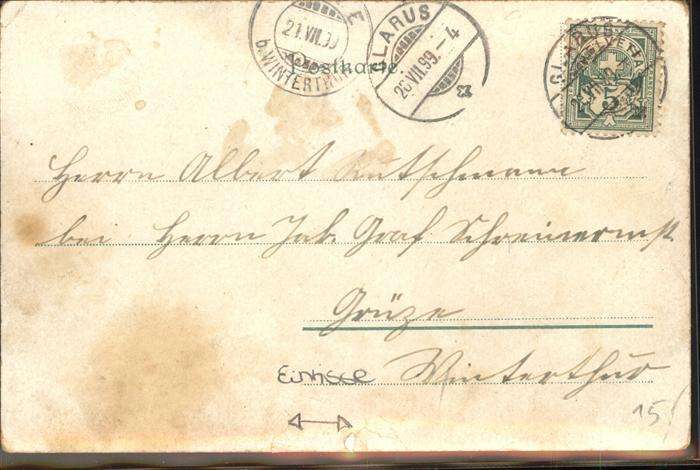 E
21.VII.99
b. WINTERTHUR
GLARUS
20.VII.99.-4
GLARUS
HELVETIA
5
Postkarte.
Herrn Albert Rutschmann
bei Herrn Jak. Graf Schreinermst
Grüze
Einrisse Winterthur
15